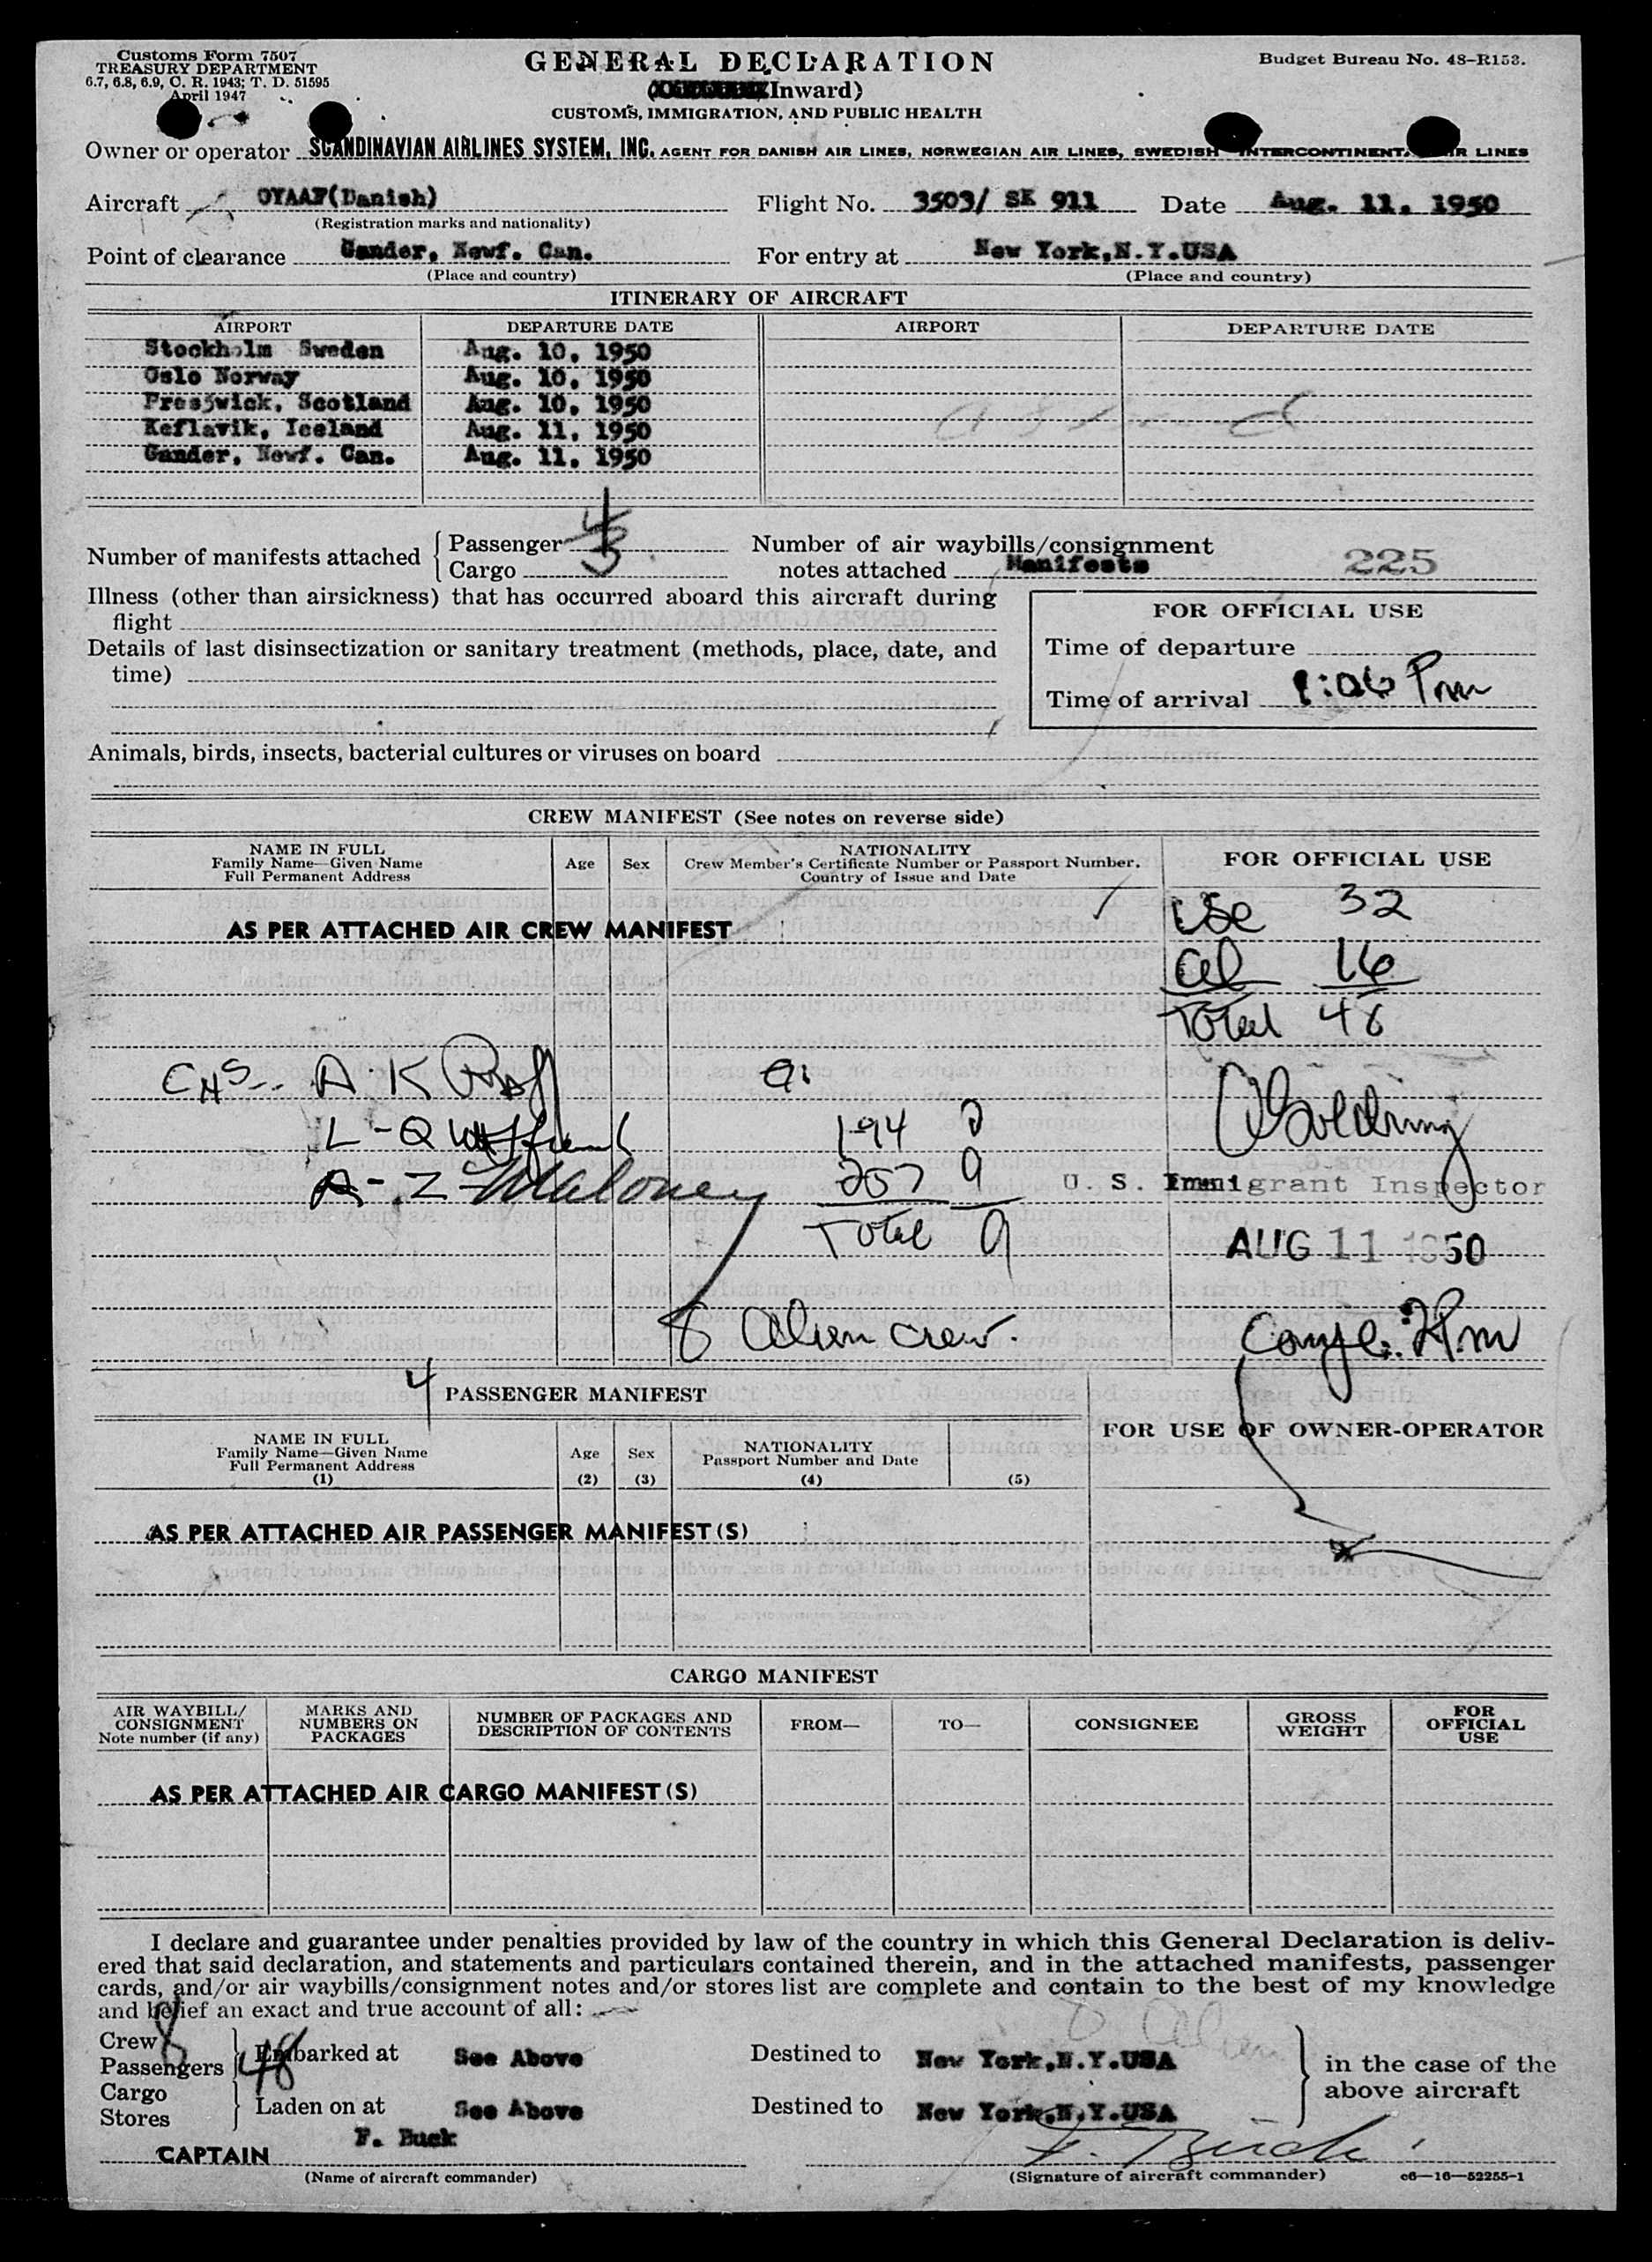 Customs Form 7507
TREASURY DEPARTMENT
6.7, 6.8, 6.9, C. R. 1943; T. D. 51595
April 1947
GENERAL DECLARATION
Inward)
CUSTOMS, IMMIGRATION, AND PUBLIC HEALTH
Budget Bureau No. 48-R153.
Owner or operator SCANDINAVIAN AIRLINES SYSTEM, INC. AGENT FOR DANISH AIR LINES, NORWEGIAN AIR LINES, SWEDISH INTERCONTINENTAL AIR LINES
Aircraft OYAAF(Danish) Flight No. 3503/ SK 911 Date Aug. 11. 1950
(Registration marks and nationality)
Point of clearance Gander, Newf. Can. For entry at New York,N.Y.USA
(Place and country) (Place and country)
ITINERARY OF AIRCRAFT
AIRPORT DEPARTURE DATE AIRPORT DEPARTURE DATE
Stockholm Sweden Aug. 10, 1950
Oslo Norway Aug. 10, 1950
Prestwick, Scotland Aug. 10, 1950
Keflavik, Iceland Aug. 11, 1950
Gander, Newf. Can. Aug. 11. 1950
Number of manifests attached { Passenger
Cargo
Number of air waybills/consignment
notes attached Manifests 225
Illness (other than airsickness) that has occurred aboard this aircraft during
flight
Details of last disinsectization or sanitary treatment (methods, place, date, and
time)
FOR OFFICIAL USE
Time of departure
Time of arrival 1:06 Pm
Animals, birds, insects, bacterial cultures or viruses on board
CREW MANIFEST (See notes on reverse side)
NAME IN FULL
Family Name—Given Name
Full Permanent Address
Age Sex
NATIONALITY
Crew Member's Certificate Number or Passport Number.
Country of Issue and Date
FOR OFFICIAL USE
USC 32
AS PER ATTACHED AIR CREW MANIFEST
al 16
Total 48
A-K
L-Q 194
A-Z Maloney 257 9
U. S. Immigrant Inspector
Total 9
AUG 11 1950
8 Alien crew.
4
PASSENGER MANIFEST
NAME IN FULL
Family Name—Given Name
Full Permanent Address
(1)
Age
(2)
Sex
(3)
NATIONALITY
Passport Number and Date
(4) (5)
FOR USE OF OWNER-OPERATOR
AS PER ATTACHED AIR PASSENGER MANIFEST(S)
CARGO MANIFEST
AIR WAYBILL/
CONSIGNMENT
Note number (if any)
MARKS AND
NUMBERS ON
PACKAGES
NUMBER OF PACKAGES AND
DESCRIPTION OF CONTENTS
FROM— TO— CONSIGNEE
GROSS
WEIGHT
FOR
OFFICIAL
USE
AS PER ATTACHED AIR CARGO MANIFEST(S)
I declare and guarantee under penalties provided by law of the country in which this General Declaration is deliv-
ered that said declaration, and statements and particulars contained therein, and in the attached manifests, passenger
cards, and/or air waybills/consignment notes and/or stores list are complete and contain to the best of my knowledge
and belief an exact and true account of all:
Crew 8
Passengers 48 Embarked at See Above Destined to New York,N.Y.USA in the case of the
Cargo above aircraft
Stores Laden on at See Above Destined to New York,N.Y.USA
CAPTAIN F. Buck F. Buck
(Name of aircraft commander) (Signature of aircraft commander) c6—16—52255-1